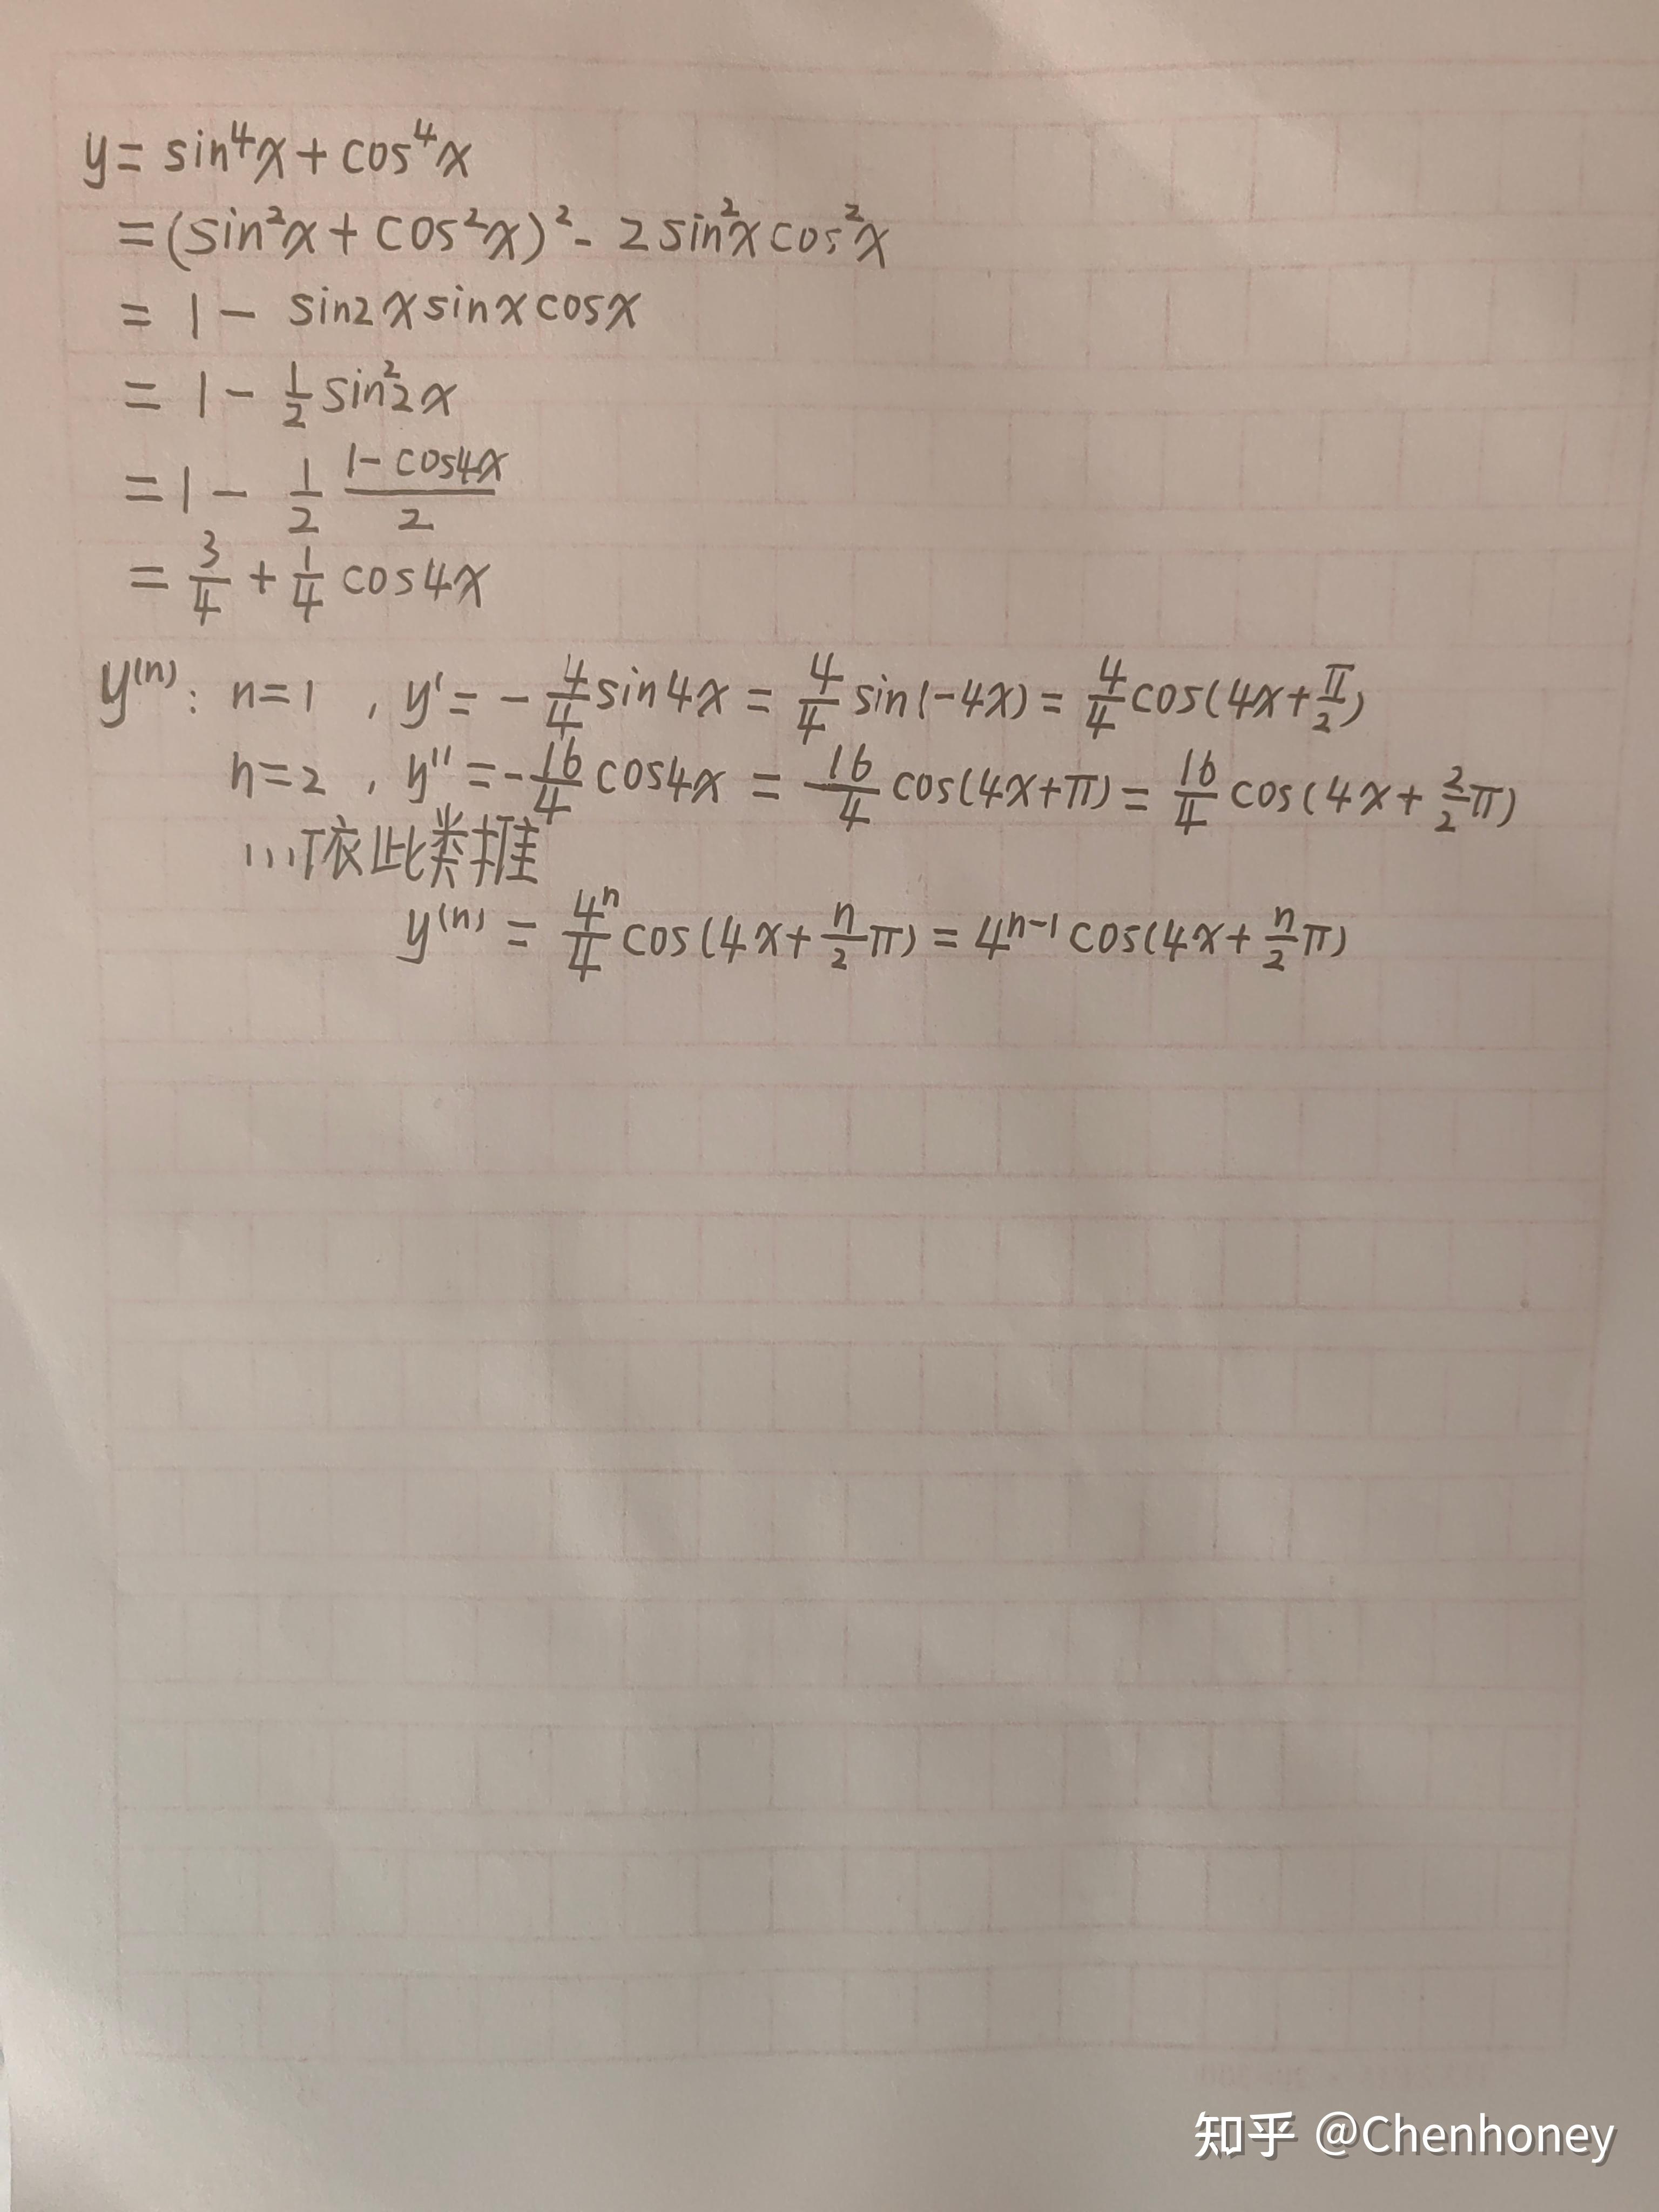 y = sin⁴x + cos⁴x
= (sin²x + cos²x)² - 2sin²xcos²x
= 1 - sin2xsinxcosx
= 1 - 1/2 sin²2x
= 1 - 1/2 (1-cos4x)/2
= 3/4 + 1/4 cos4x
y⁽ⁿ⁾: n=1, y' = - 4/4 sin4x = 4/4 sin(-4x) = 4/4 cos(4x+π/2)
n=2, y'' = - 16/4 cos4x = 16/4 cos(4x+π) = 16/4 cos(4x+2/2π)
...依此类推
y⁽ⁿ⁾ = 4ⁿ/4 cos(4x+n/2π) = 4ⁿ⁻¹cos(4x+n/2π)
知乎 @Chenhoney